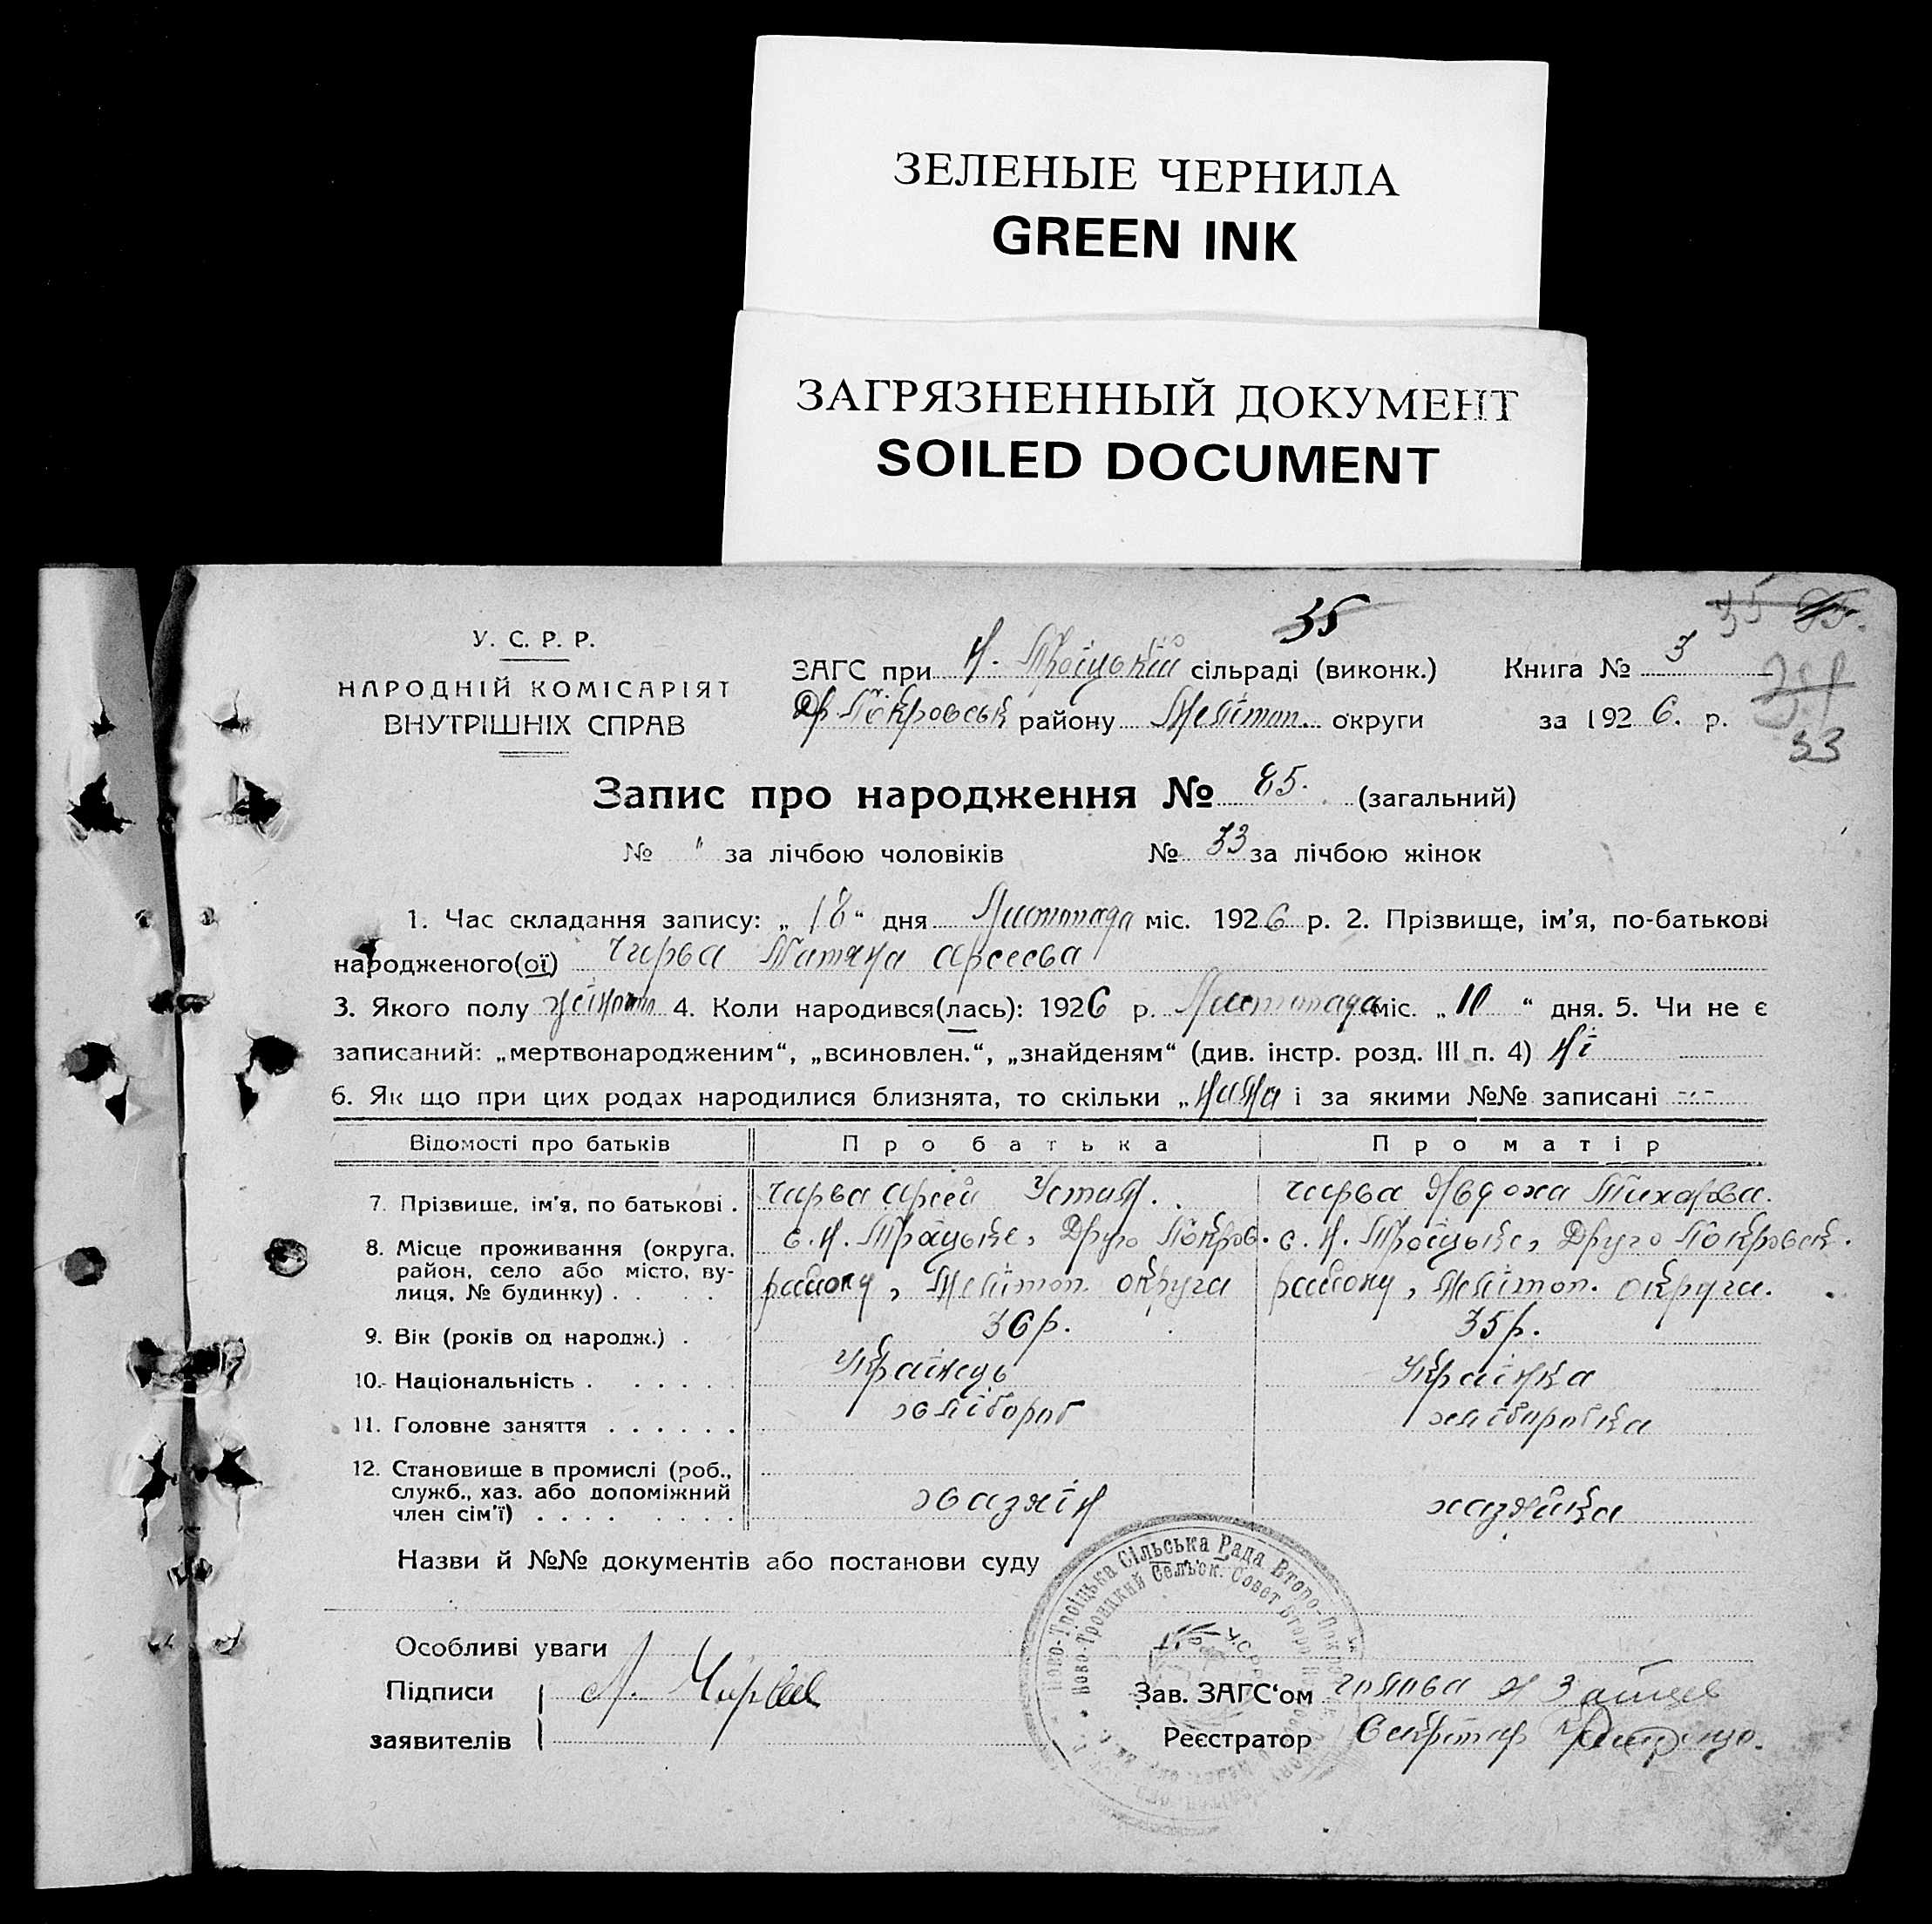 ЗЕЛЕНЫЕ ЧЕРНИЛА
GREEN INK
ЗАГРЯЗНЕННЫЙ ДОКУМЕНТ
SOILED DOCUMENT
35
35 85.
У. С. Р. Р.
НАРОДНІЙ КОМІСАРІЯТ
ВНУТРІШНІХ СПРАВ
ЗАГС при Н. Троіцькій сільраді (виконк.) Книга № 3
Др. Покровськ район у Мелітоп. округи за 1926. р.
33
Запис про народження № 85. (загальний)
№ " за лічбою чоловіків № 33 за лічбою жінок
1. Час складання запису: „18“ дня Листопада міс. 1926 р. 2. Прізвище, ім'я, по-батькові
народженого(ої) Чирва Татяна Арсеєва
3. Якого полу жіноч 4. Коли народився(лась): 1926 р. Листопада міс. „10“ дня. 5. Чи не є
записаний: „мертвонародженим“, „всиновлен.“, „знайденям“ (див. інстр. розд. III п. 4) Ні
6. Як що при цих родах народилися близнята, то скільки „ і за якими №№ записані ---
Відомості про батьків Про батька Про матір
7. Прізвище, ім'я, по батькові . Чирва Арсей Устин. Чирва Явдоха Тихарова.
8. Місце проживання (округа, район, село або місто, вулиця, № будинку) . с. Н. Троіцьке, Друго Покров. с. Н. Троіцьке, Друго Покровськ.
району, Мелітоп. округа району, Мелітоп. округи.
9. Вік (років од народж.) . 36 р. 35 р.
10. Національність . Українець Українка
11. Головне заняття . хлібороб хліборобка
12. Становище в промислі (роб., служб., хаз. або допоміжний член сім'ї) . хазяїн хазяйка
Назви й №№ документів або постанови суду
Ново-Троіцька Сільська Рада Второ-Покров
Ново-Троицкий Сельск. Совет Второ
У.С.Р.Р.
Особливі уваги
Підписи А. Чирва Зав. ЗАГС'ом голова
заявителів Реєстратор Секретар